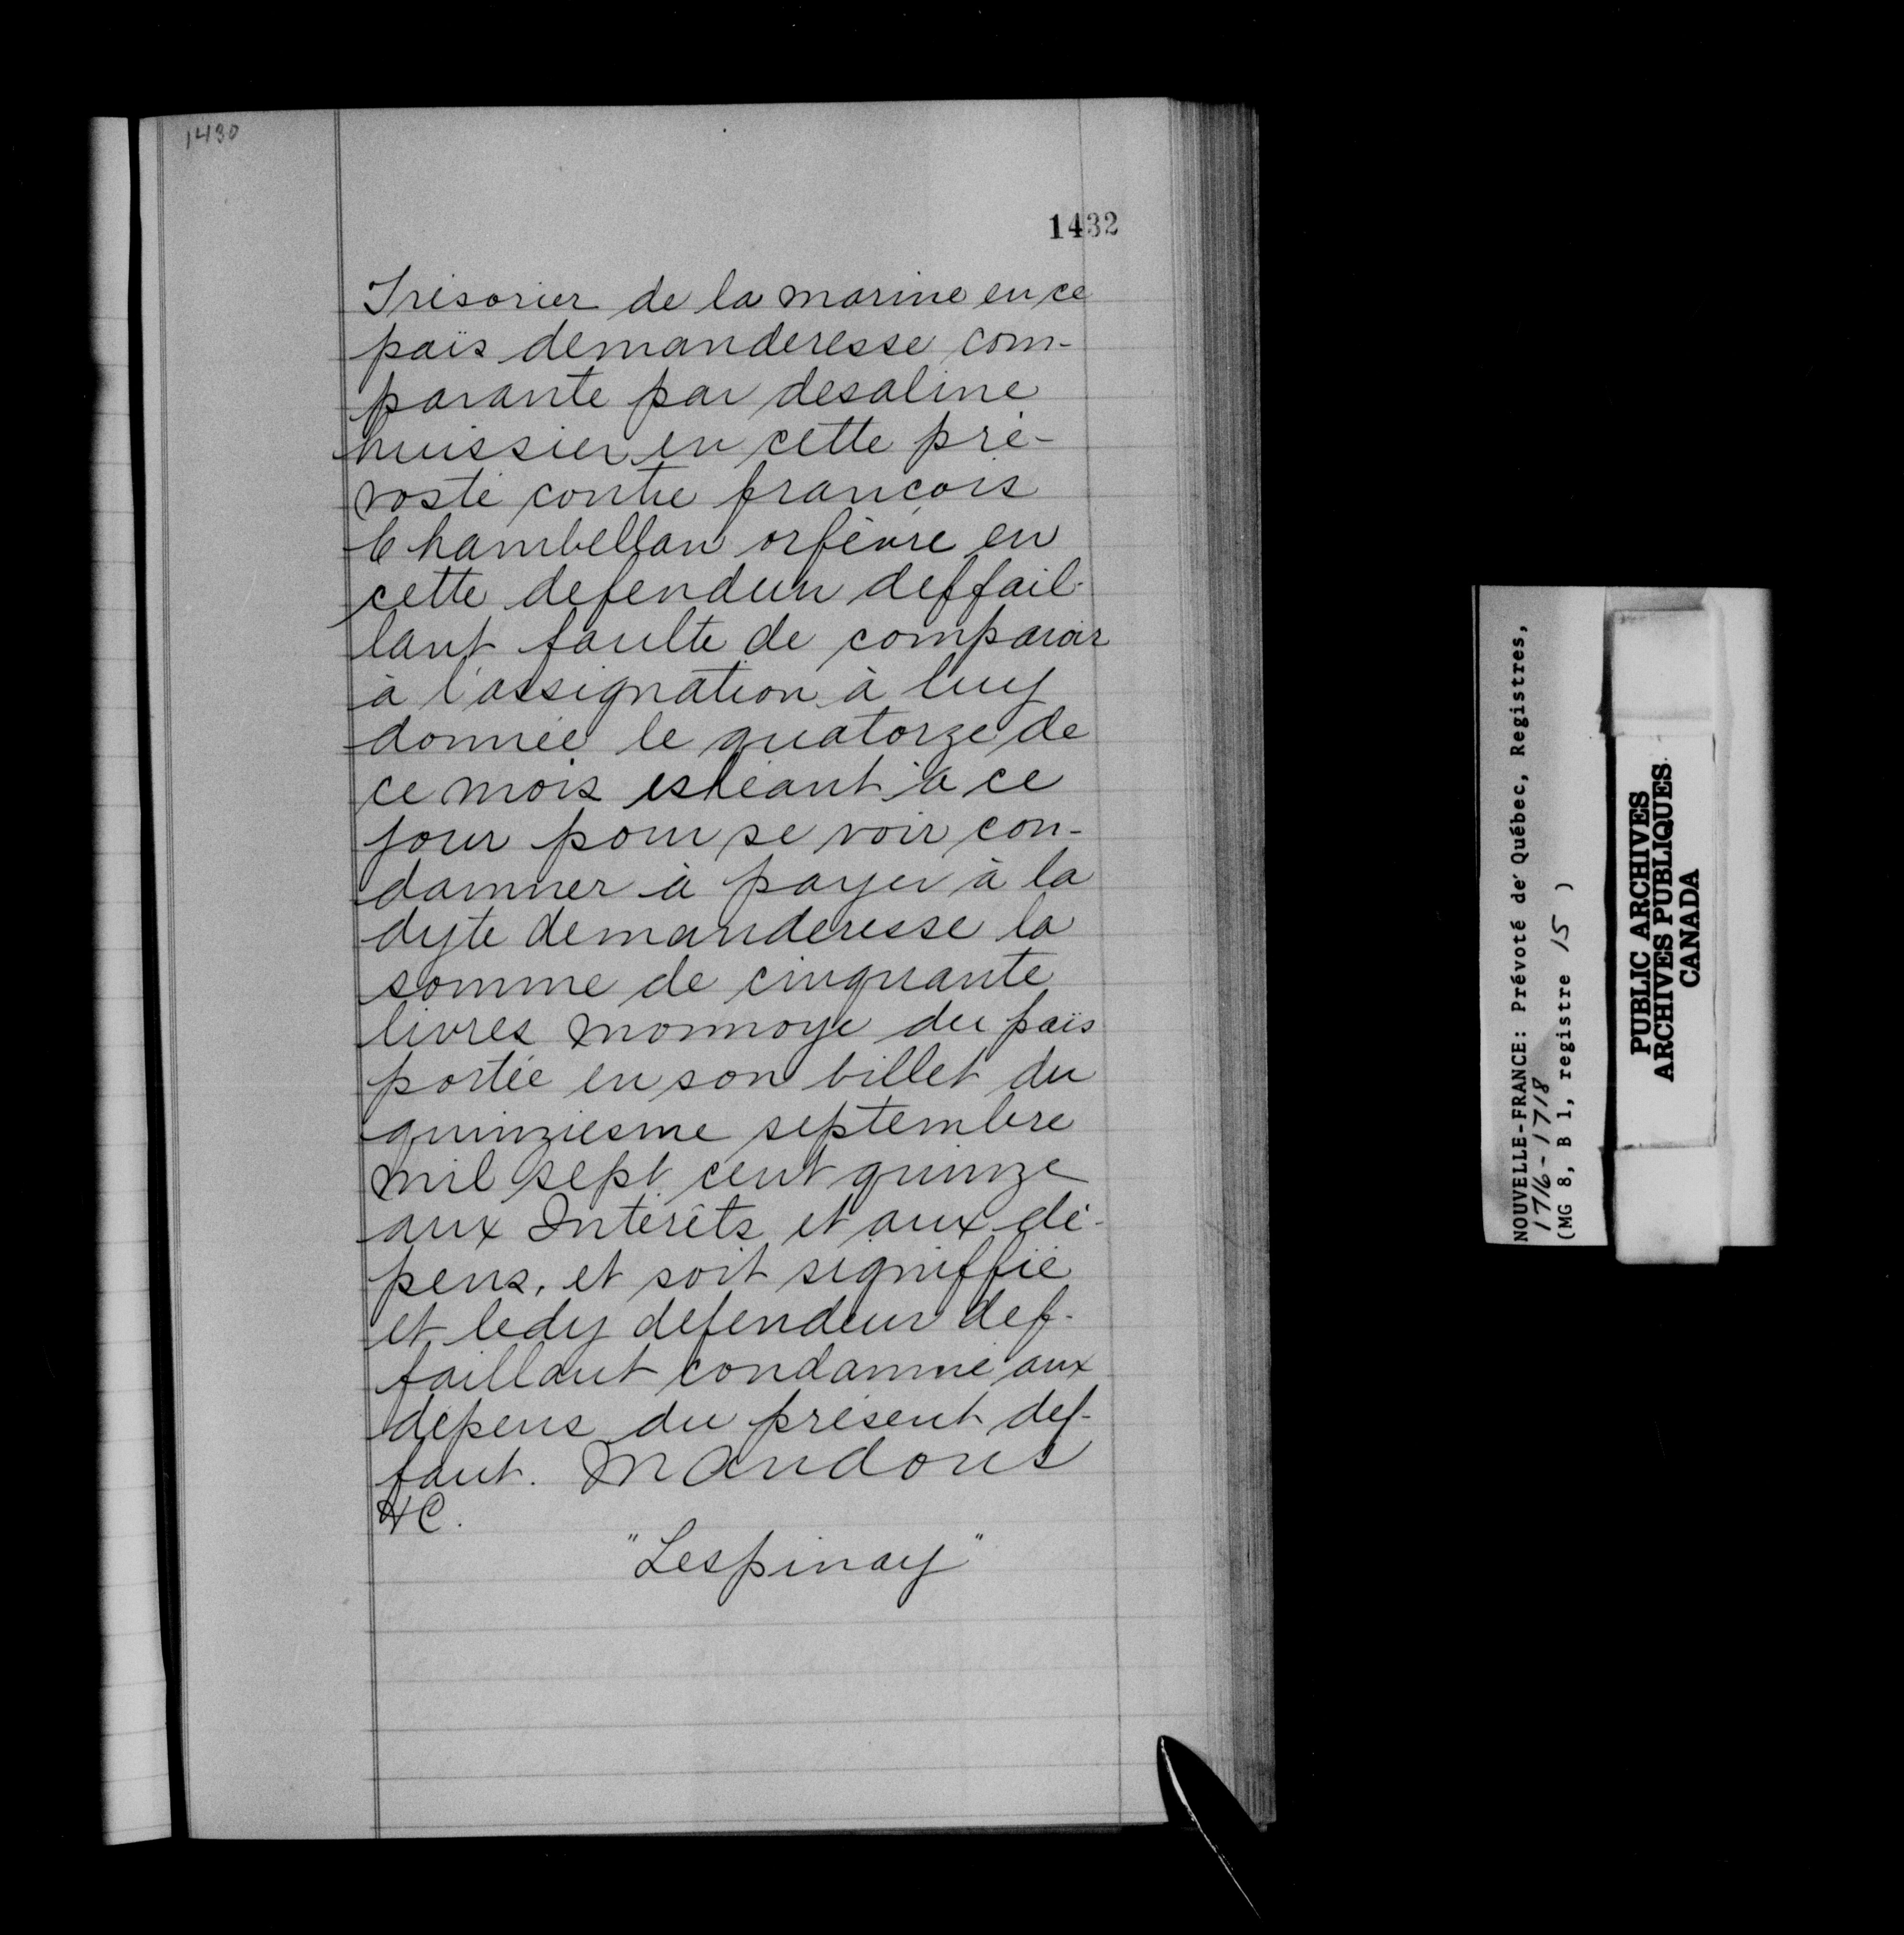 1430
1432
Trésorier de la marine en ce
païs demanderesse com-
parante par desaline
huissier en cette pré-
vosté contre françois
Chambellan orfèvre en
cette defendeur deffail-
lant faulte de comparoir
à l'assignation à luy
donnée le quatorze de
ce mois eshéant à ce
jour pour se voir con-
damner à payer à la
dyte demanderesse la
somme de cinquante
livres monnoye du païs
portée en son billet du
quinziesme septembre
mil sept cent quinze
aux Interêts et aux dé-
pens, et soit signiffié
et ledy defendeur def-
faillant condamné aux
dépens du présent def-
faut. Mandons
&C.
"Lespinay"
NOUVELLE-FRANCE: Prévoté de Québec, Registres,
1716-1718
(MG 8, B 1, registre 15 )
PUBLIC ARCHIVES
ARCHIVES PUBLIQUES
CANADA